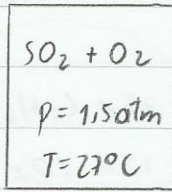 SO₂ + O₂
p = 1,5 atm
T = 27°C